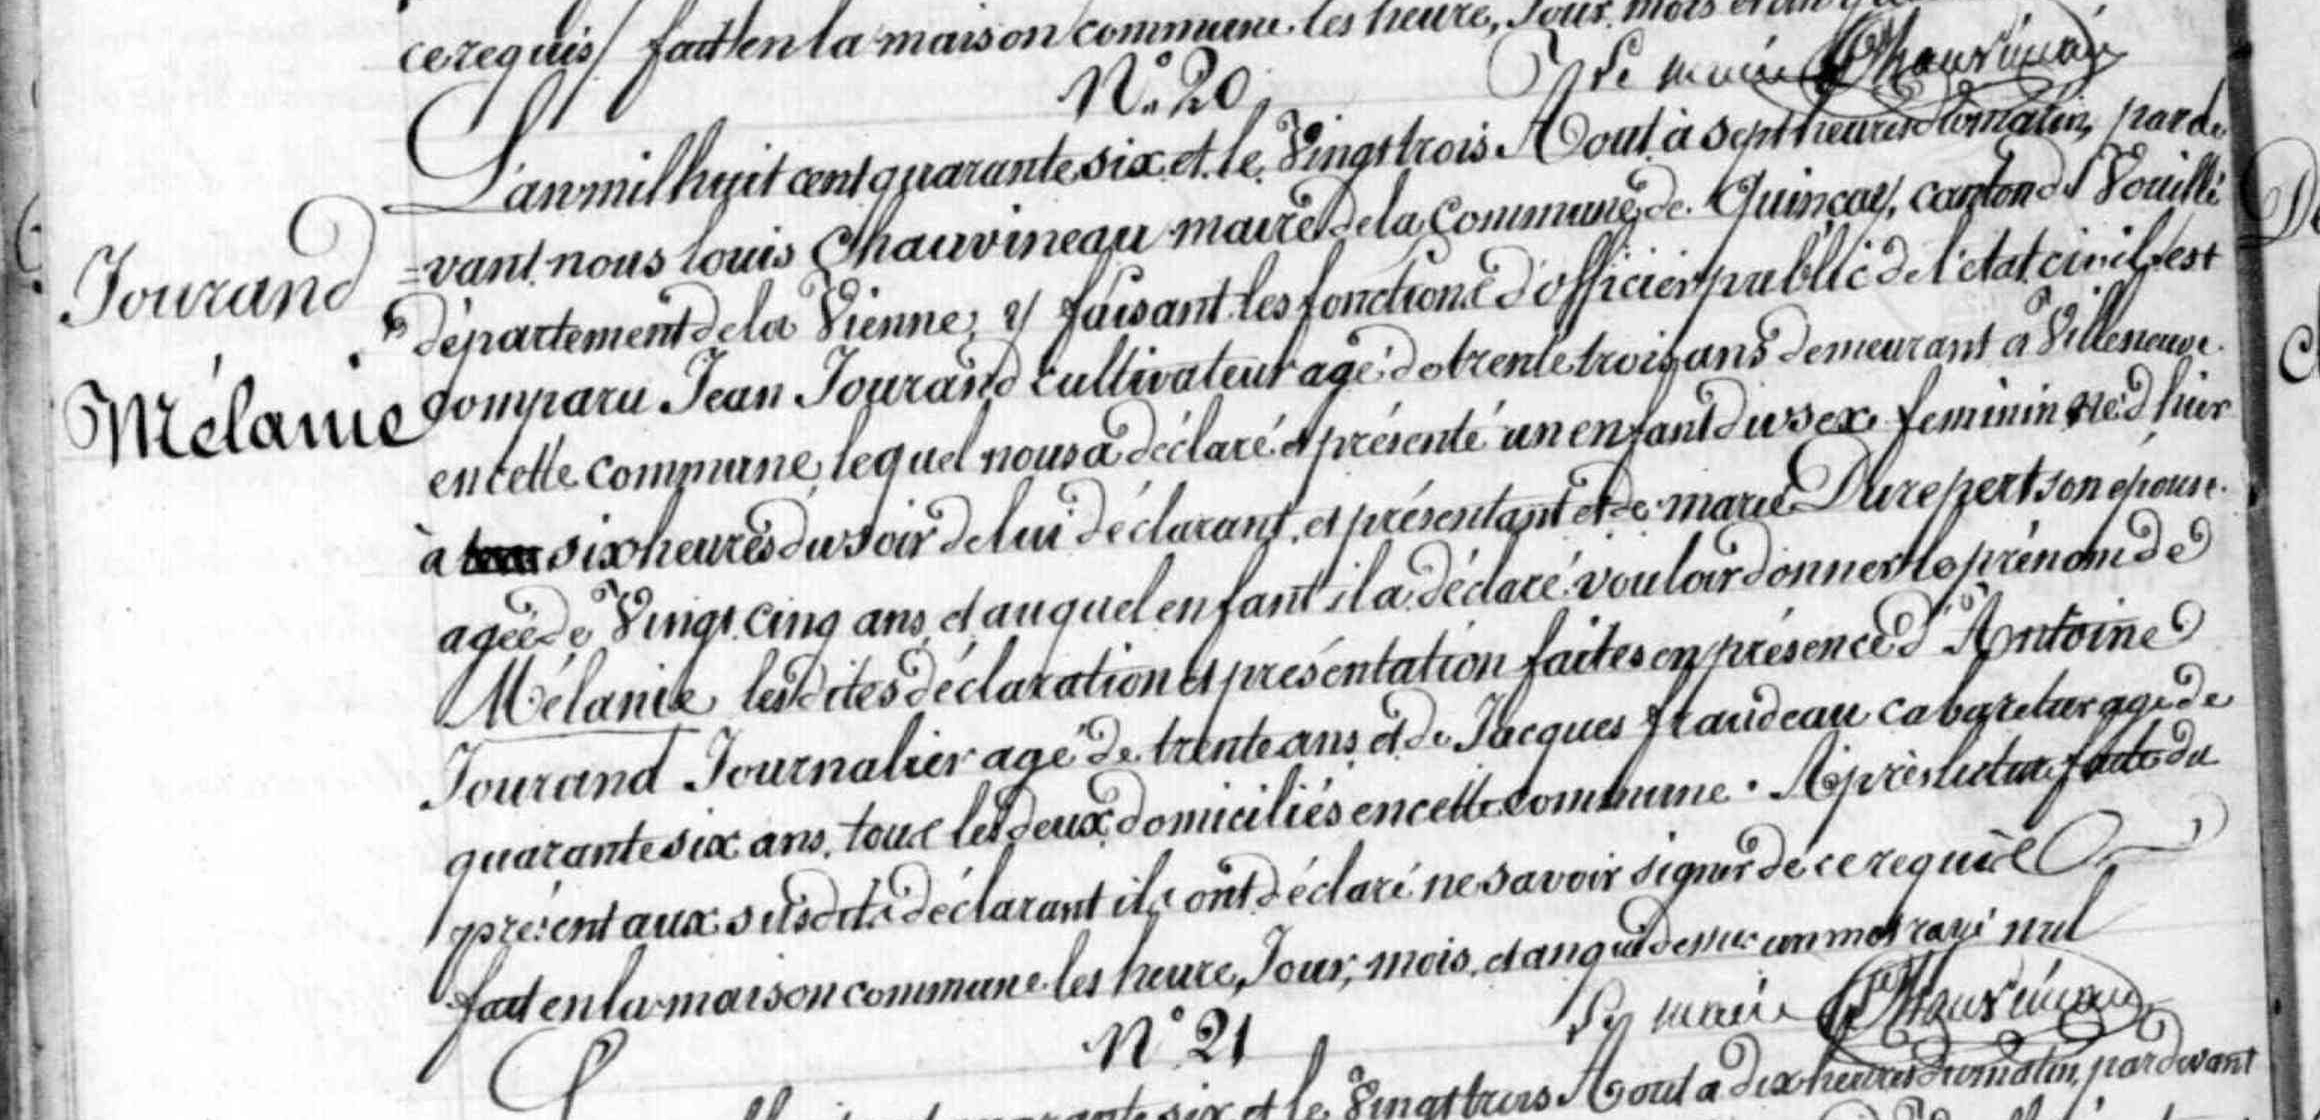 ce requis / fait en la maison commune les heure, Jour, mois et an
Le maire Chauvineau
N.° 20
L'an mil huit cent quarante six et le Vingt trois Aout à sept heures du matin, parde
=vant nous Louis Chauvineau maire de la Commune de Quinçay, canton de Vouillé
Jourand
département de la Vienne, y faisant les fonctions d'officier public de l'état civil, est
Mélanie
comparu Jean Jourand cultivateur agé de trente trois ans demeurant à Villeneuve
en cette commune, lequel nous a déclaré et présenté un enfant du sexe feminin né d'hier
à six heures du soir de lui déclarant, et présentant et de marie Durepert son épouse
agée de Vingt cinq ans, et auquel enfant il a déclaré vouloir donner le prénom de
Mélanie les dites déclaration et présentation faites en présence d'Antoine
Jourand Journalier agé de trente ans et de Jacques fraudeau cabaretier agé de
quarante six ans, tous les deux domiciliés en cette commune. Après lecture faite du
présent aux susdits déclarant ils ont déclaré ne savoir signer de ce requis
fait en la maison commune les heure, Jour, mois, et an qui dessus un mot rayé nul
Le maire Chauvineau
N° 21
et le Vingt trois Aout à dix heures du matin, par devant